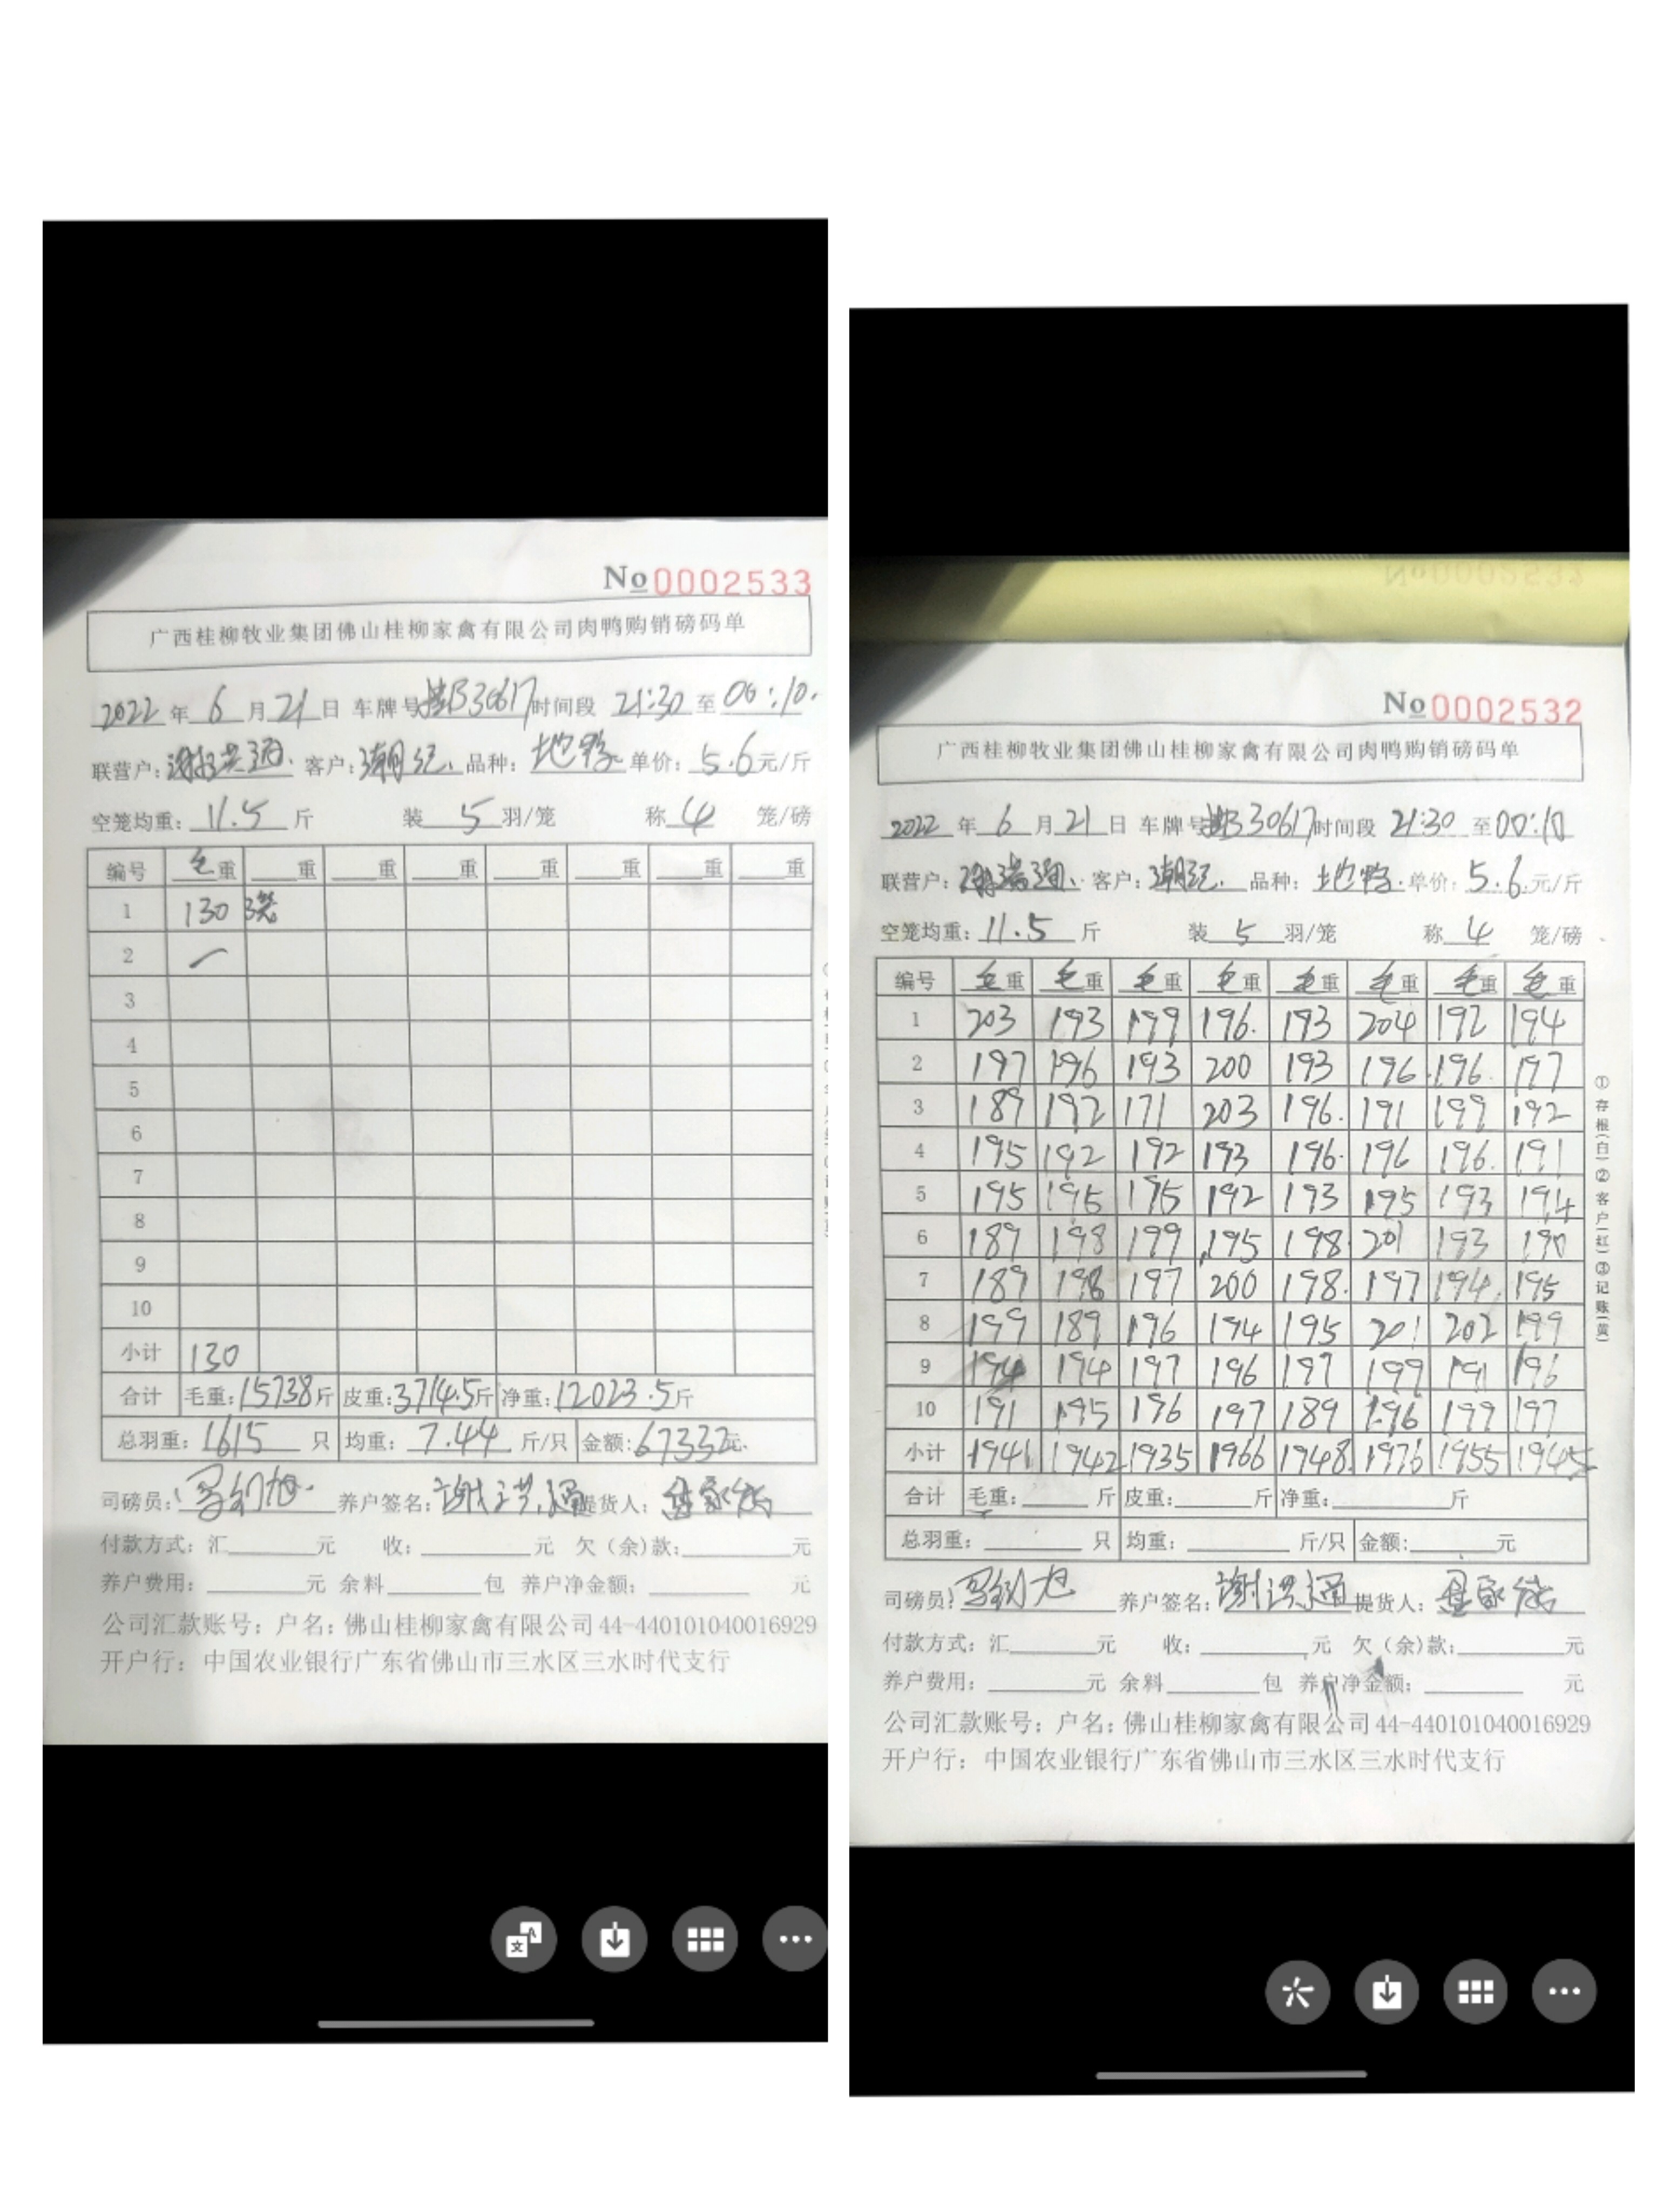 No0002533
广西桂柳牧业集团佛山桂柳家禽有限公司肉鸭购销磅码单
2022 年 6 月 21 日 车牌号 B30617 时间段 21:30 至 00:10.
联营户: 客户: 潮记. 品种: 地鸭 单价: 5.6 元/斤
空笼均重: 11.5 斤 装 5 羽/笼 称 4 笼/磅
编号 毛重 重 重 重 重 重 重 重
1 130 3笼
2
3
4
5
6
7
8
9
10
小计 130
合计 毛重: 15738斤 皮重: 3714.5斤 净重: 12023.5斤
总羽重: 1615 只 均重: 7.44 斤/只 金额: 67332元.
司磅员: 养户签名: 谢洪通 提货人:
付款方式: 汇 元 收: 元 欠(余)款: 元
养户费用: 元 余料 包 养户净金额: 元
公司汇款账号: 户名: 佛山桂柳家禽有限公司44-440101040016929
开户行: 中国农业银行广东省佛山市三水区三水时代支行
No0002532
广西桂柳牧业集团佛山桂柳家禽有限公司肉鸭购销磅码单
2022 年 6 月 21 日 车牌号 B30617 时间段 21:30 至 00:10
联营户: 客户: 潮记. 品种: 地鸭. 单价: 5.6 元/斤
空笼均重: 11.5 斤 装 5 羽/笼 称 4 笼/磅
编号 毛重 毛重 毛重 毛重 毛重 毛重 毛重 毛重
1 203 193 199 196. 193 204 192 194
2 197 196 193 200 193 196 196. 197
3 189 192 171 203 196. 191 199 192
4 195 192 192 193 196. 196 196. 191
5 195 195 195 192 193 195 193 194
6 189 198 199 195 198. 201 193 190
7 189 198 197 200 198. 197 194. 195
8 199 189 196 194 195 201 202 199
9 194 194 197 196 197 199 191 196
10 191 195 196 197 189 196 199 197
小计 1941 1942 1935 1966 1948. 1976 1955 1945
合计 毛重: 斤 皮重: 斤 净重: 斤
总羽重: 只 均重: 斤/只 金额: 元
司磅员: 养户签名: 谢洪通 提货人:
付款方式: 汇 元 收: 元 欠(余)款: 元
养户费用: 元 余料 包 养户净金额: 元
公司汇款账号: 户名: 佛山桂柳家禽有限公司44-440101040016929
开户行: 中国农业银行广东省佛山市三水区三水时代支行
①存根(白)②客户(红)③记账(黄)